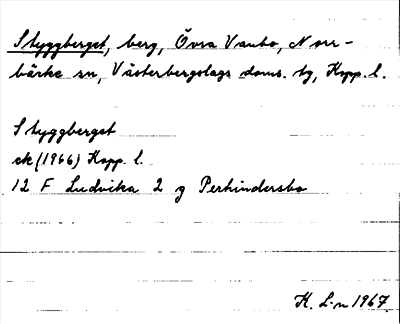 Styggberget, berg, Övra Vanbo, Norr-
bärke sn, Västerbergslags doms. tg, Kopp. l.
Styggberget
ek (1966) Kopp. l.
12 F Ludvika 2 g Perhindersbo
K. L-n 1967.